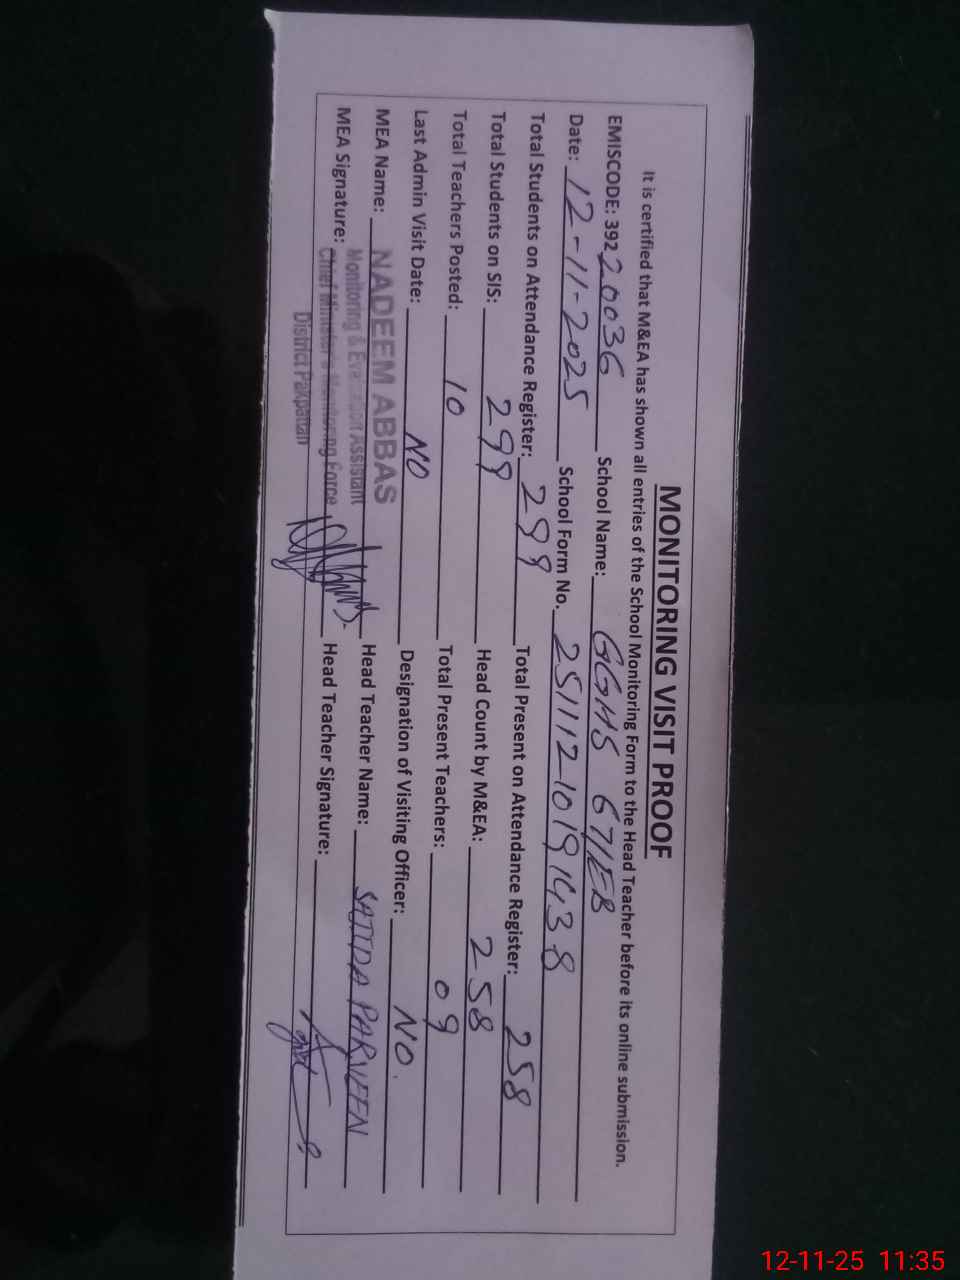 MONITORING VISIT PROOF
It is certified that M&EA has shown all entries of the School Monitoring Form to the Head Teacher before its online submission.
EMISCODE: 39220036 School Name: GGHS 67/EB
Date: 12-11-2025 School Form No. 25111210191438
Total Students on Attendance Register: 299 Total Present on Attendance Register: 258
Total Students on SIS: 299 Head Count by M&EA: 258
Total Teachers Posted: 10 Total Present Teachers: 09
Last Admin Visit Date: NO Designation of Visiting Officer: NO.
MEA Name: NADEEM ABBAS Head Teacher Name: SAJIDA PARVEEN
Monitoring & Evaluation Assistant
MEA Signature: Chief Minister's Monitoring Force Head Teacher Signature:
District Pakpattan
12-11-25 11:35